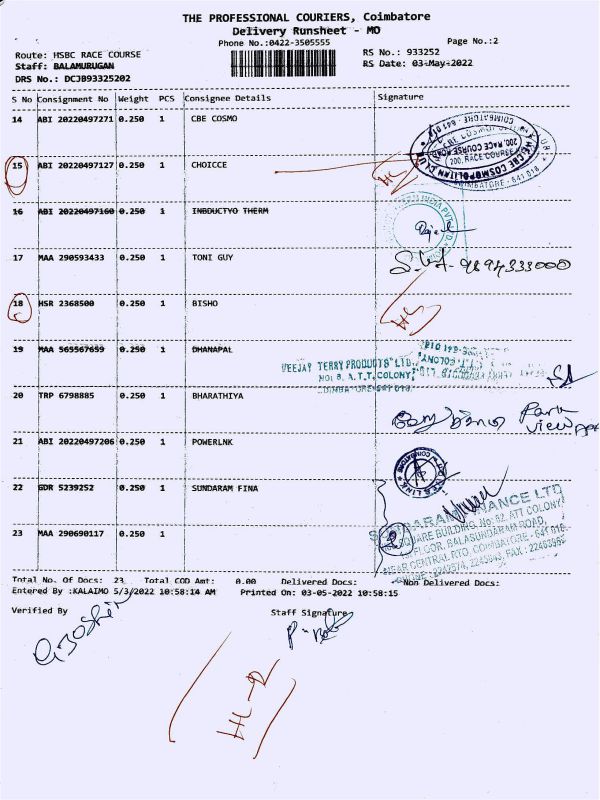 THE PROFESSIONAL COURIERS, Coimbatore
Delivery Runsheet - MO
Phone No.:0422-3505555
Page No.:2
Route: HSBC RACE COURSE
RS No.: 933252
Staff: BALAMURUGAN
RS Date: 03-May-2022
DRS No.: DCJB93325202
S No Consignment No Weight PCS Consignee Details Signature
14 ABI 20220497271 0.250 1 CBE COSMO
200, RACE COURSE
15 ABI 20220497127 0.250 1 CHOICCE
16 ABI 20220497160 0.250 1 INBDUCTYO THERM
17 MAA 290593433 0.250 1 TONI GUY 9894333000
18 HSR 2368500 0.250 1 BISHO
19 MAA 565567659 0.250 1 DHANAPAL
VEEJAY TERRY PRODUCTS LTD.,
NO: 8, A.T.T. COLONY,
20 TRP 6798885 0.250 1 BHARATHIYA Park View
21 ABI 20220497206 0.250 1 POWERLNK
22 GDR 5239252 0.250 1 SUNDARAM FINA
23 MAA 290690117 0.250 1
SQUARE BUILDING No: 62, ATT COLONY
FLOOR, BALASUNDARAM ROAD,
NEAR CENTRAL RTO, COIMBATORE - 641 018
Total No. Of Docs: 23 Total COD Amt: 0.00 Delivered Docs: Non Delivered Docs:
Entered By :KALAIMO 5/3/2022 10:58:14 AM Printed On: 03-05-2022 10:58:15
Verified By Staff Signature
HL-2